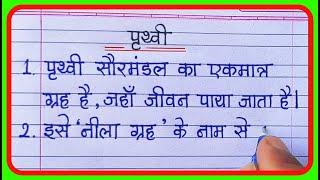 पृथ्वी
1. पृथ्वी सौरमंडल का एकमात्र
ग्रह है, जहाँ जीवन पाया जाता है।
2. इसे 'नीला ग्रह' के नाम से